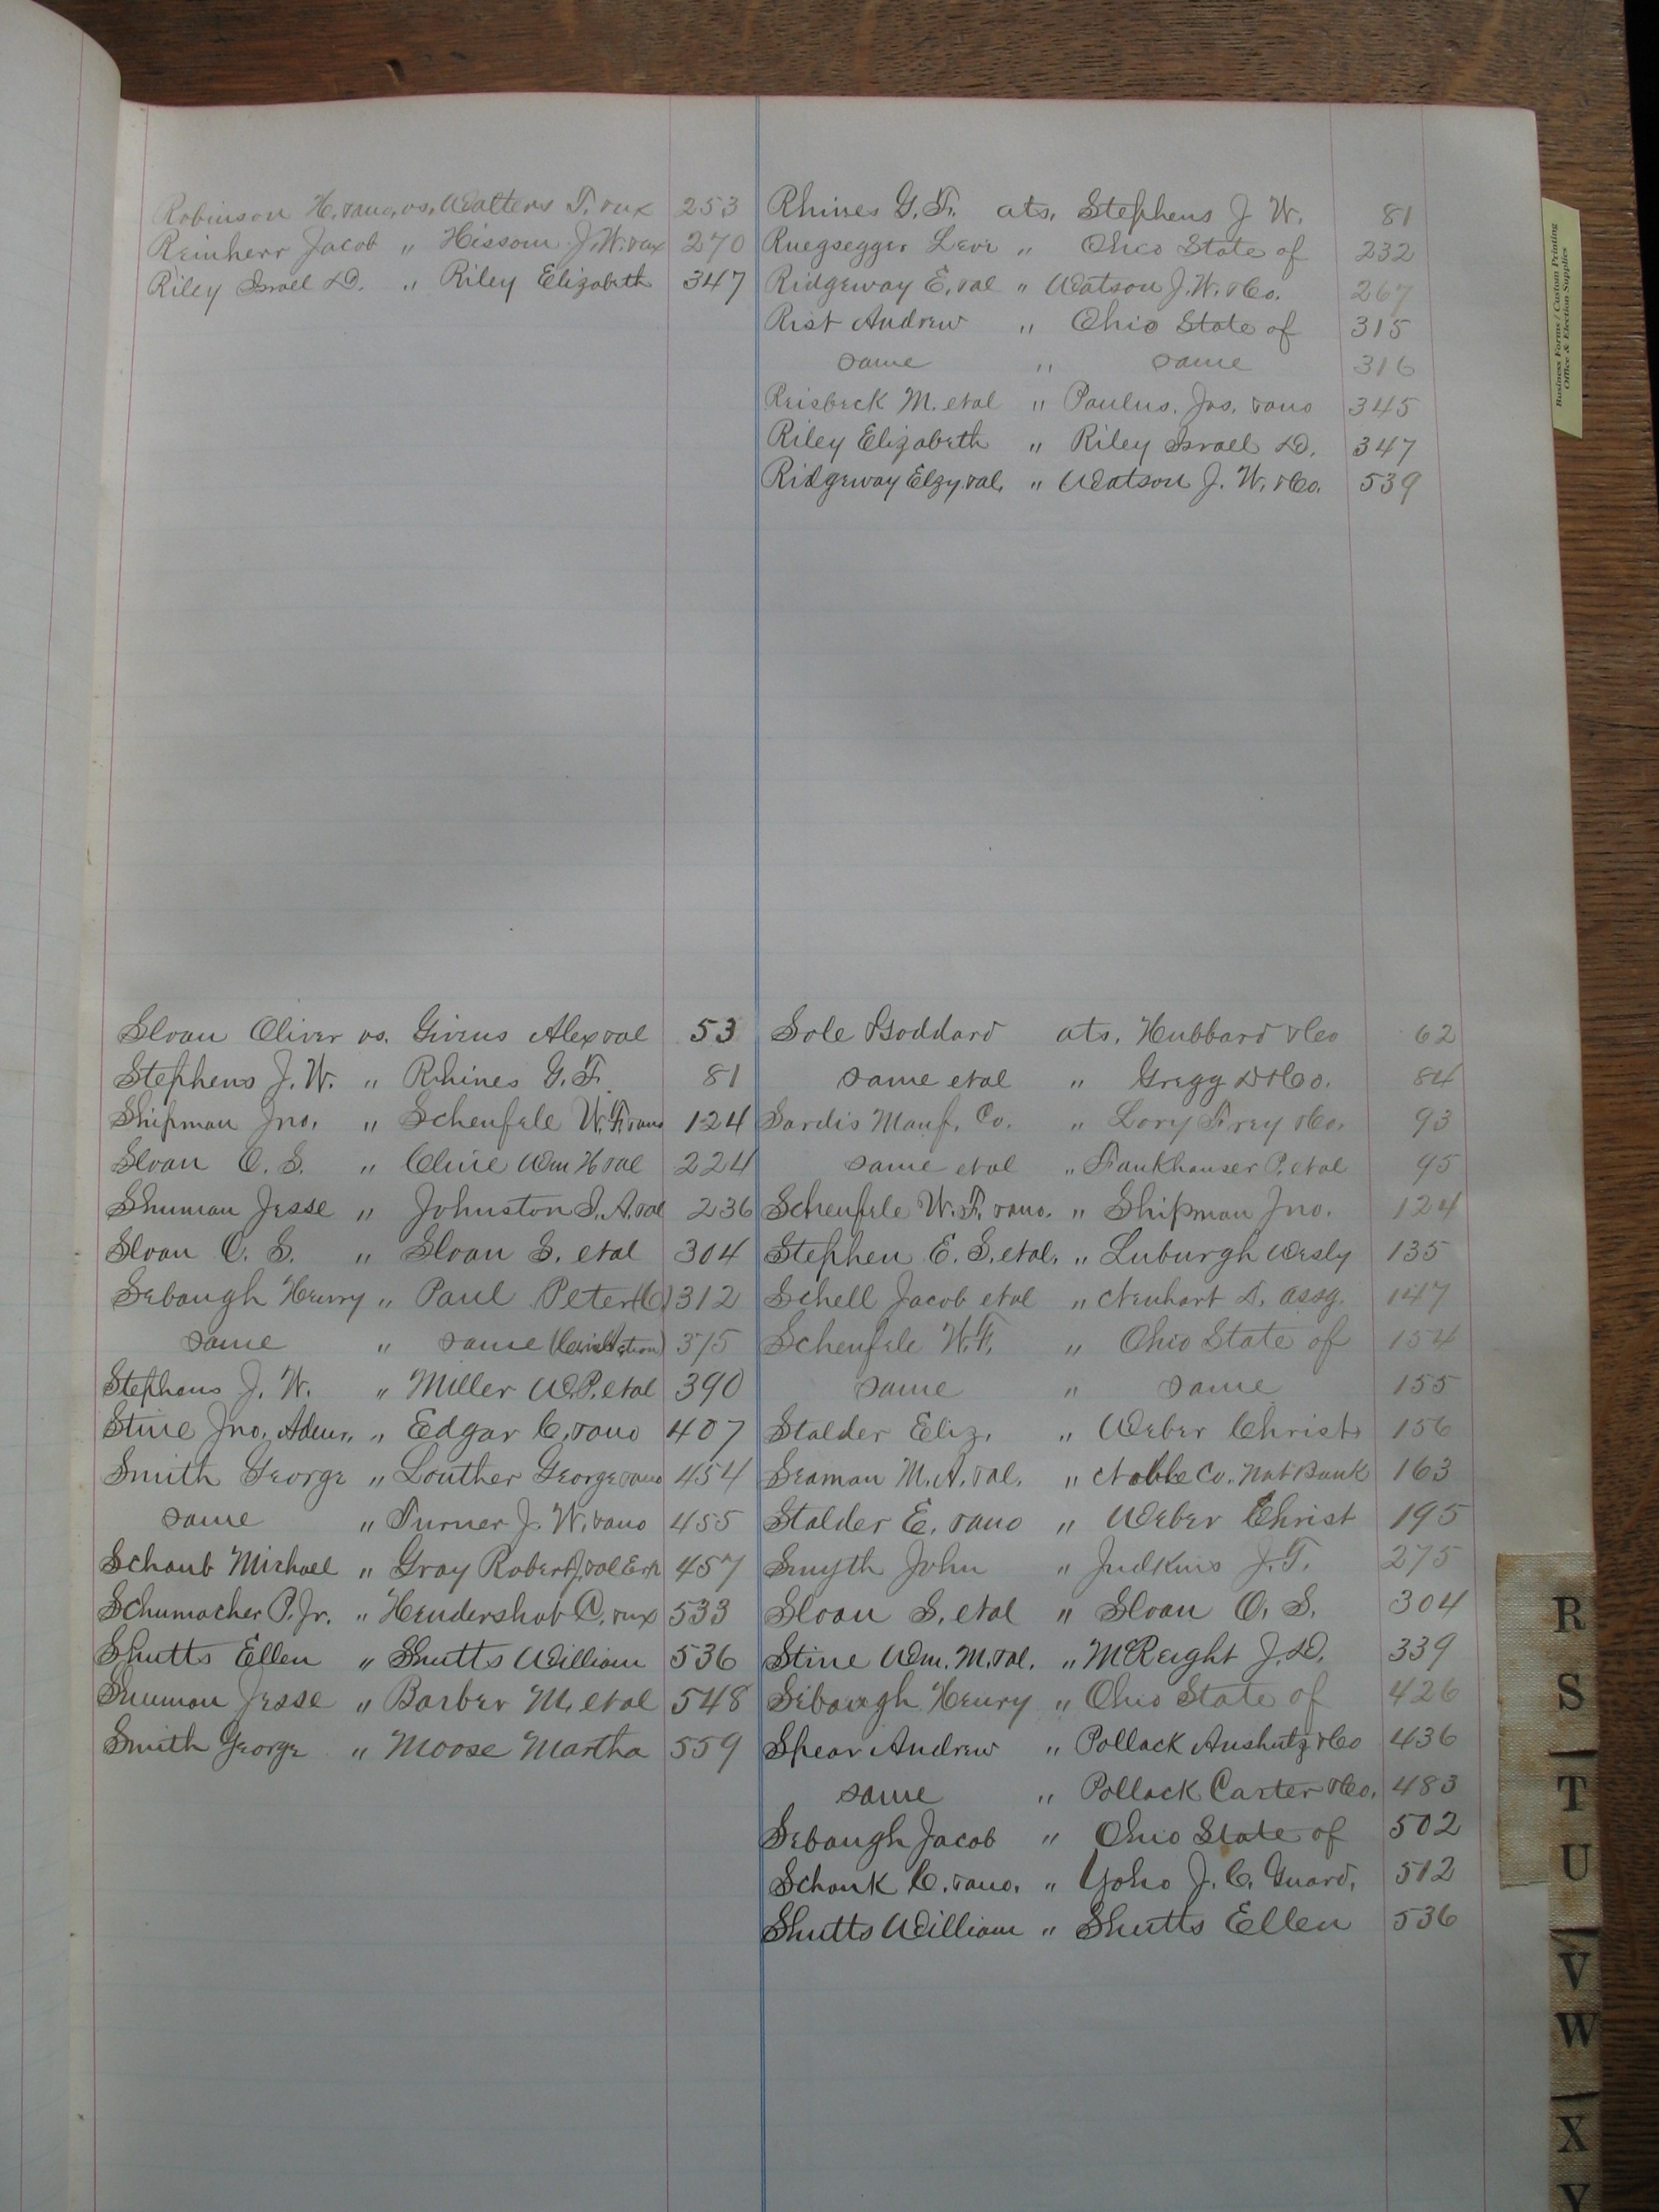 Robinson H. & ano. vs. Watters T. & ux 253
Reinherr Jacob " Hissom J. W. & ux 270
Riley Israel D. " Riley Elizabeth 347
Rhines G. F. ats. Stephens J W. 81
Ruegsegger Levi " Ohio State of 232
Ridgeway E. & al " Watson J. W. & Co. 267
Rist Andrew " Ohio State of 315
same " same 316
Reisbeck M. et al " Paulus. Jos. & ano 345
Riley Elizabeth " Riley Israel D. 347
Ridgeway Elzy & al. " Watson J. W. & Co. 539
Business Forms / Custom Printing
Office & Election Supplies
Sloan Oliver vs. Givens Alex & al 53
Stephens J. W. " Rhines G. F. 81
Shipman Jno. " Scheufele W. F. & ano 124
Sloan O. S. " Cline Wm H & al 224
Shuman Jesse " Johnston S. A. & al 236
Sloan O. S. " Sloan S. et al 304
Sebaugh Henry " Paul Peter 312
same " same 375
Stephens J. W. " Miller W. P. et al 390
Stine Jno. Admr. " Edgar C. & ano 407
Smith George " Louther George & ano 454
same " Turner J. W. & ano 455
Schaub Michael " Gray Robert J. & al Exr 457
Schumacher P. Jr. " Hendershot C. & ux 533
Shutts Ellen " Shutts William 536
Shuman Jesse " Barber M. et al 548
Smith George " Moose Martha 559
Sole & Goddard ats. Hubbard & Co 62
same et al " Gregg D & Co. 84
Sardis Manf. Co. " Lory Frey & Co. 93
same et al " Fankhauser P. et al 95
Scheufele W. F. & ano. " Shipman Jno. 124
Stephen E. S. et al. " Luburgh Wesly 135
Schell Jacob et al " Neuhart D. Assg. 147
Scheufele W. F. " Ohio State of 154
same " same 155
Stalder Eliz. " Weber Christ 156
Seaman M. A. & al. " Noble Co. Nat Bank 163
Stalder E. & ano " Weber Christ 195
Smyth John " Judkins J. T. 275
Sloan S. et al " Sloan O. S. 304
Stine Wm. M. & al. " McReight J. D. 339
Sebaugh Henry " Ohio State of 426
Spear Andrew " Pollack Anshutz & Co 436
same " Pollack Carter & Co. 483
Sebaugh Jacob " Ohio State of 502
Schonk C. & ano. " Yoho J. C. Guard. 512
Shutts William " Shutts Ellen 536
R
S
T
U
V
W
X
Y